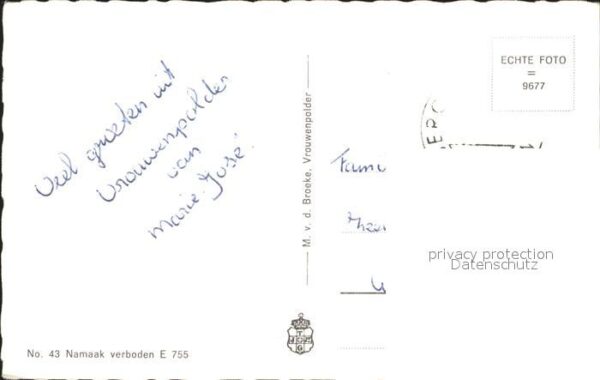 Veel groeten uit
Vrouwenpolder
van
Marie-José!
No. 43 Namaak verboden E 755
M. v. d. Broeke, Vrouwenpolder
ECHTE FOTO
=
9677
Fam
privacy protection
Datenschutz